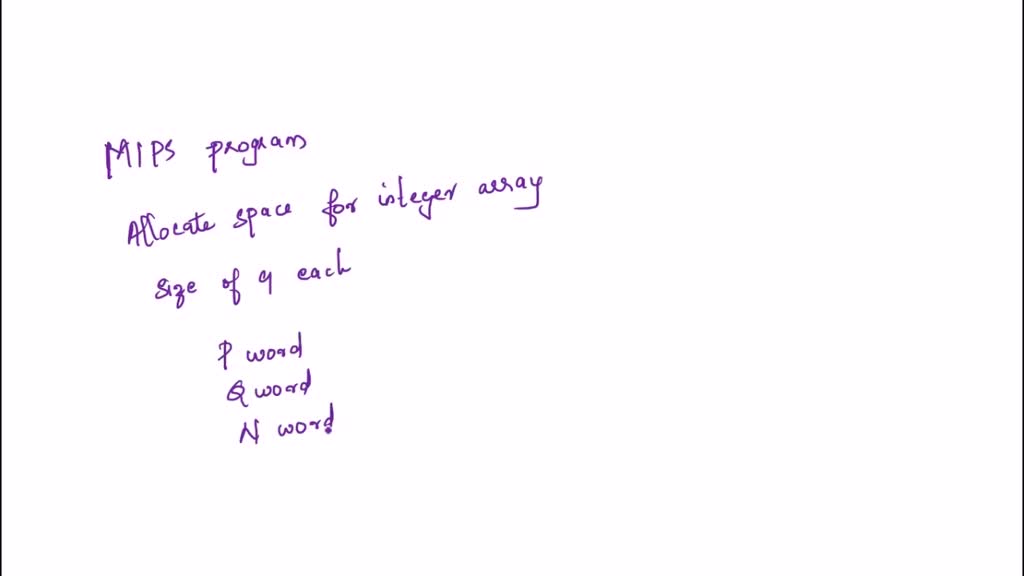 MIPS program
Allocate space for integer array
Size of 9 each
P word
Q word
N word